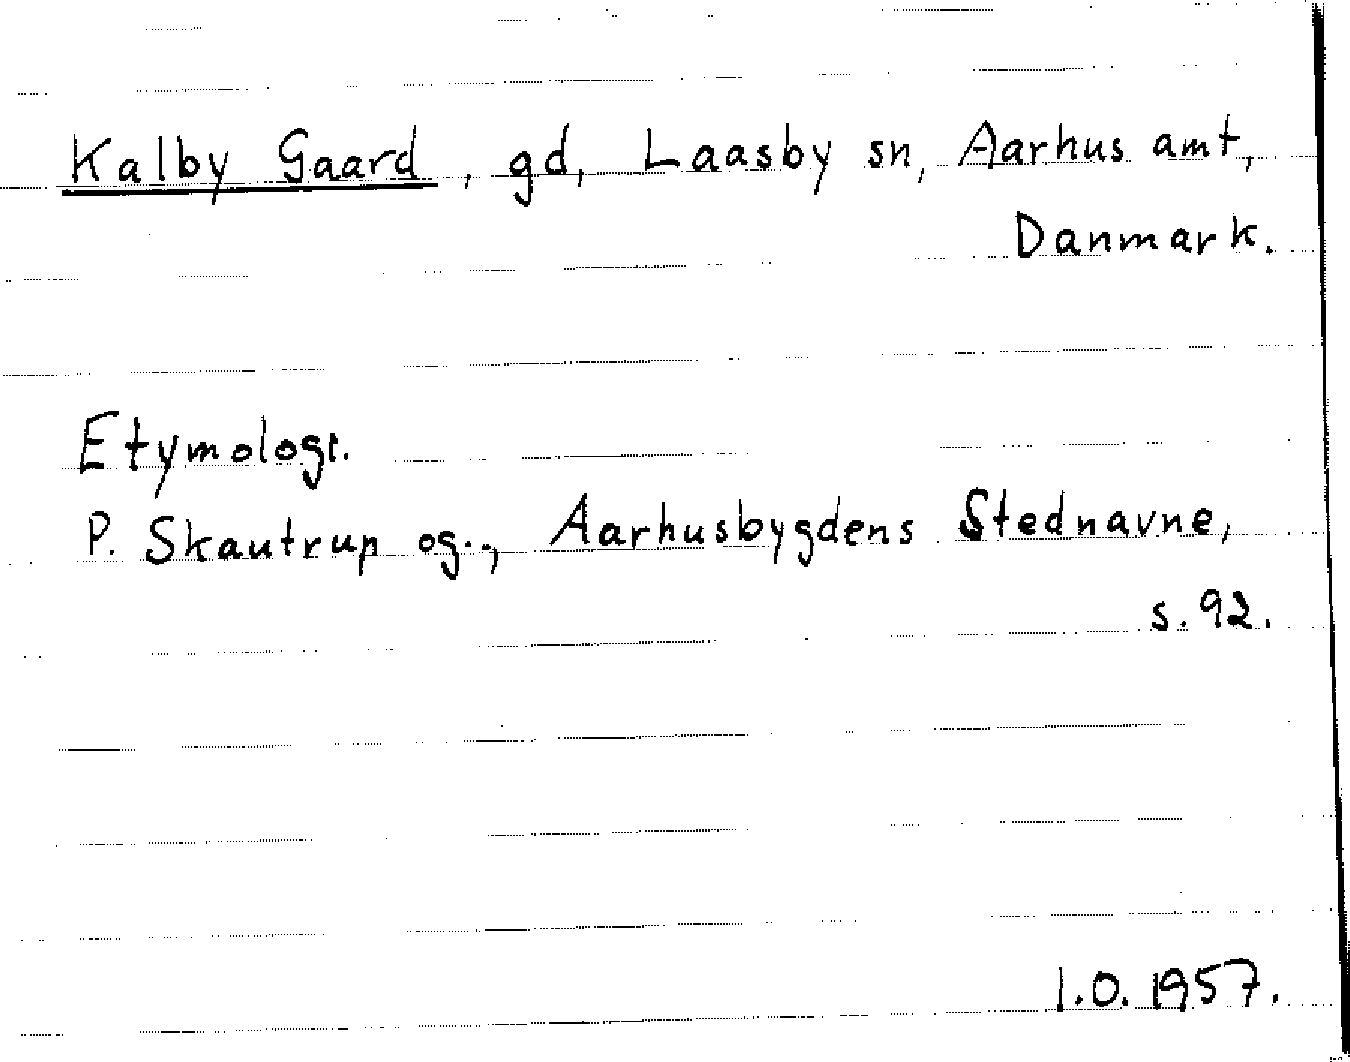 Kalby Gaard, gd, Laasby sn, Aarhus amt,
Danmark.
Etymologi.
P. Skautrup og., Aarhusbygdens Stednavne,
s. 92.
I.O. 1957.